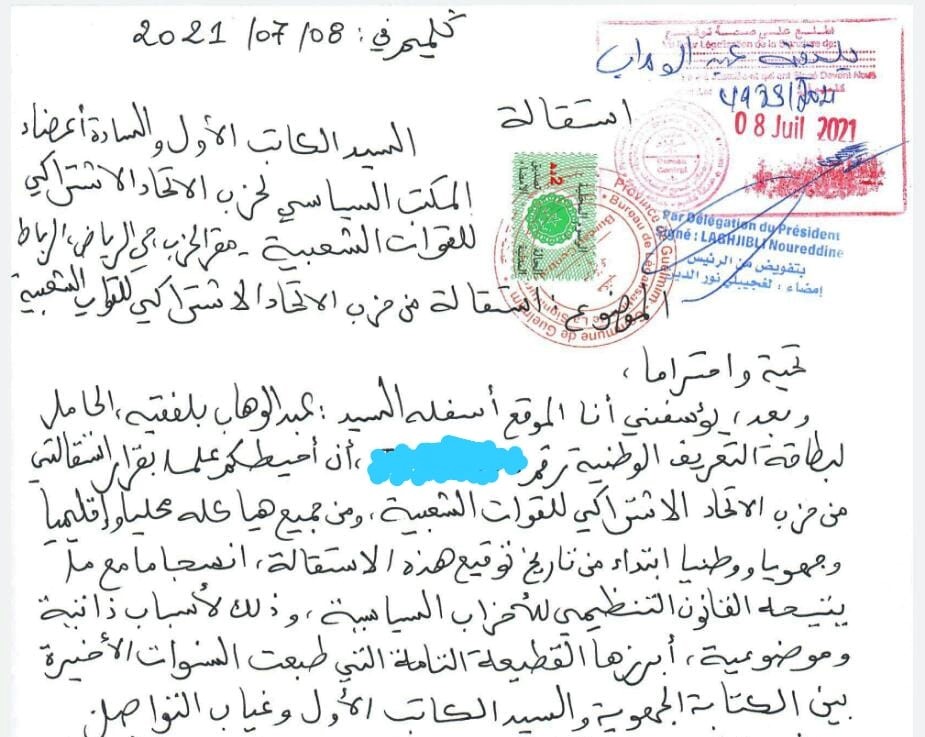 كلميم في: 08/07/2021
اطلع على صحة توقيع
Vu Pour Légalisation de la Signature de:
بلفقيه عبد الوهاب
4933/2021
08 Juil 2021
Bureau Central
Par Délégation du Président
Signé : LAGHJIBLI Noureddine
بتفويض من الرئيس
إمضاء : لغجيبلي نور الدين
Province de Guelmim - Commune de Guelmim
Bureau de Légalisation de La Signature
استقالة
السيد الكاتب الأول والسادة أعضاء
المكتب السياسي لحزب الاتحاد الاشتراكي
للقوات الشعبية - مقر الحزب حي الرياض، الرباط
الموضوع: استقالة من حزب الاتحاد الاشتراكي للقوات الشعبية
تحية واحتراما،
وبعد، يؤسفني أنا الموقع أسفله السيد: عبد الوهاب بلفقيه، الحامل
لبطاقة التعريف الوطنية رقم، أن أحيطكم علما بقرار استقالتي
من حزب الاتحاد الاشتراكي للقوات الشعبية، ومن جميع هياكله محليا وإقليميا
وجهويا ووطنيا ابتداء من تاريخ توقيع هذه الاستقالة، انسجاما مع ما
يتيحه القانون التنظيمي للأحزاب السياسية، وذلك لأسباب ذاتية
وموضوعية، أبرزها القطيعة التامة التي طبعت السنوات الأخيرة
بين الكتابة الجهوية والسيد الكاتب الأول وغياب التواصل